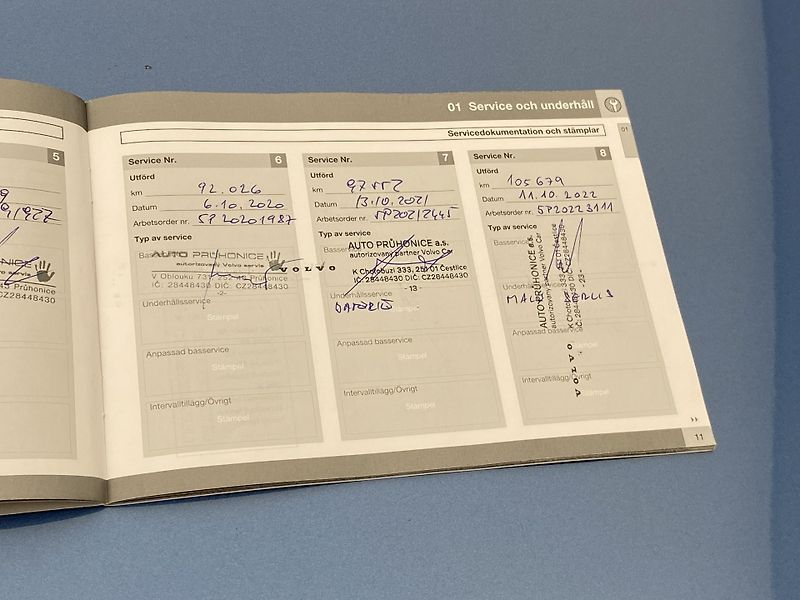 01 Service och underhåll
01
Servicedokumentation och stämplar
5
Service Nr. 6
Utförd
km 92.026
Datum 6.10.2020
Arbetsorder nr. SP20201987
Typ av service
AUTO PRŮHONICE
autorizovaný Volvo servis
V Oblouku 731, 252 43 Průhonice
IČ: 28448430 DIČ: CZ28448430
Underhållsservice
Stämpel
Anpassad basservice
Stämpel
Intervalltillägg/Övrigt
Stämpel
Service Nr. 7
Utförd
km
Datum 13.10.2021
Arbetsorder nr. SP20212445
Typ av service
AUTO PRŮHONICE a.s.
autorizovaný partner Volvo Car
VOLVO
K Chotobuzi 333, 251 01 Čestlice
IČ: 28448430 DIČ: CZ28448430
- 13 -
Underhållsservice
Stämpel
Anpassad basservice
Stämpel
Intervalltillägg/Övrigt
Stämpel
Service Nr. 8
Utförd
km 105679
Datum 11.10.2022
Arbetsorder nr. SP20223111
Typ av service
AUTO PRŮHONICE a.s.
autorizovaný partner Volvo Car
K Chotobuzi 333, 251 01 Čestlice
IČ: 28448430 DIČ: CZ28448430
- 23 -
VOLVO
Anpassad basservice
Intervalltillägg/Övrigt
Stämpel
11